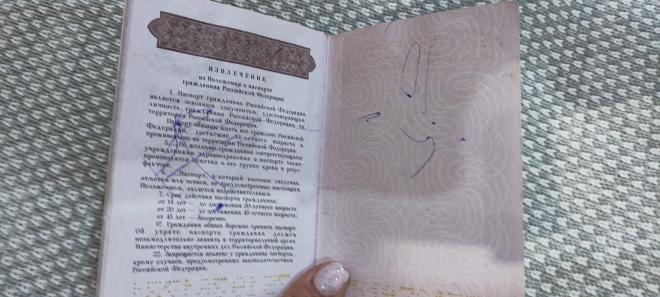 ИЗВЛЕЧЕНИЕ
из Положения о паспорте
гражданина Российской Федерации
1. Паспорт гражданина Российской Федерации
является основным документом, удостоверяющим
личность гражданина Российской Федерации на
территории Российской Федерации.
Паспорт обязаны иметь все граждане Российской
Федерации, достигшие 14-летнего возраста и
проживающие на территории Российской Федерации.
По желанию гражданина соответствующими
учреждениями здравоохранения в паспорте также
производится отметка о его группе крови и резус-
факторе.
Паспорт, в который внесены сведения,
отметки или записи, не предусмотренные настоящим
Положением, является недействительным.
7. Срок действия паспорта гражданина:
от 14 лет — до достижения 20-летнего возраста;
от 20 лет — до достижения 45-летнего возраста;
от 45 лет — бессрочно.
17. Гражданин обязан бережно хранить паспорт.
Об утрате паспорта гражданин должен
незамедлительно заявить в территориальный орган
Министерства внутренних дел Российской Федерации.
22. Запрещается изъятие у гражданина паспорта,
кроме случаев, предусмотренных законодательством
Российской Федерации.